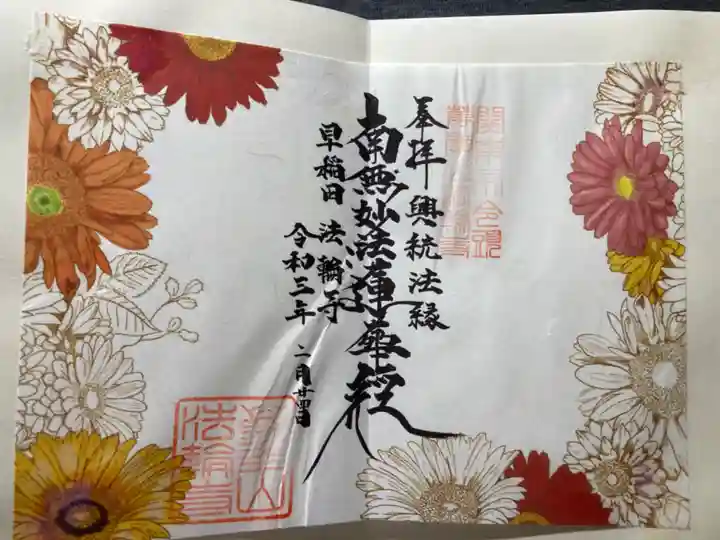 奉拝 興統法縁
南無妙法蓮華経
早稲田 法輪寺
令和三年 二月廿四日
法輪寺